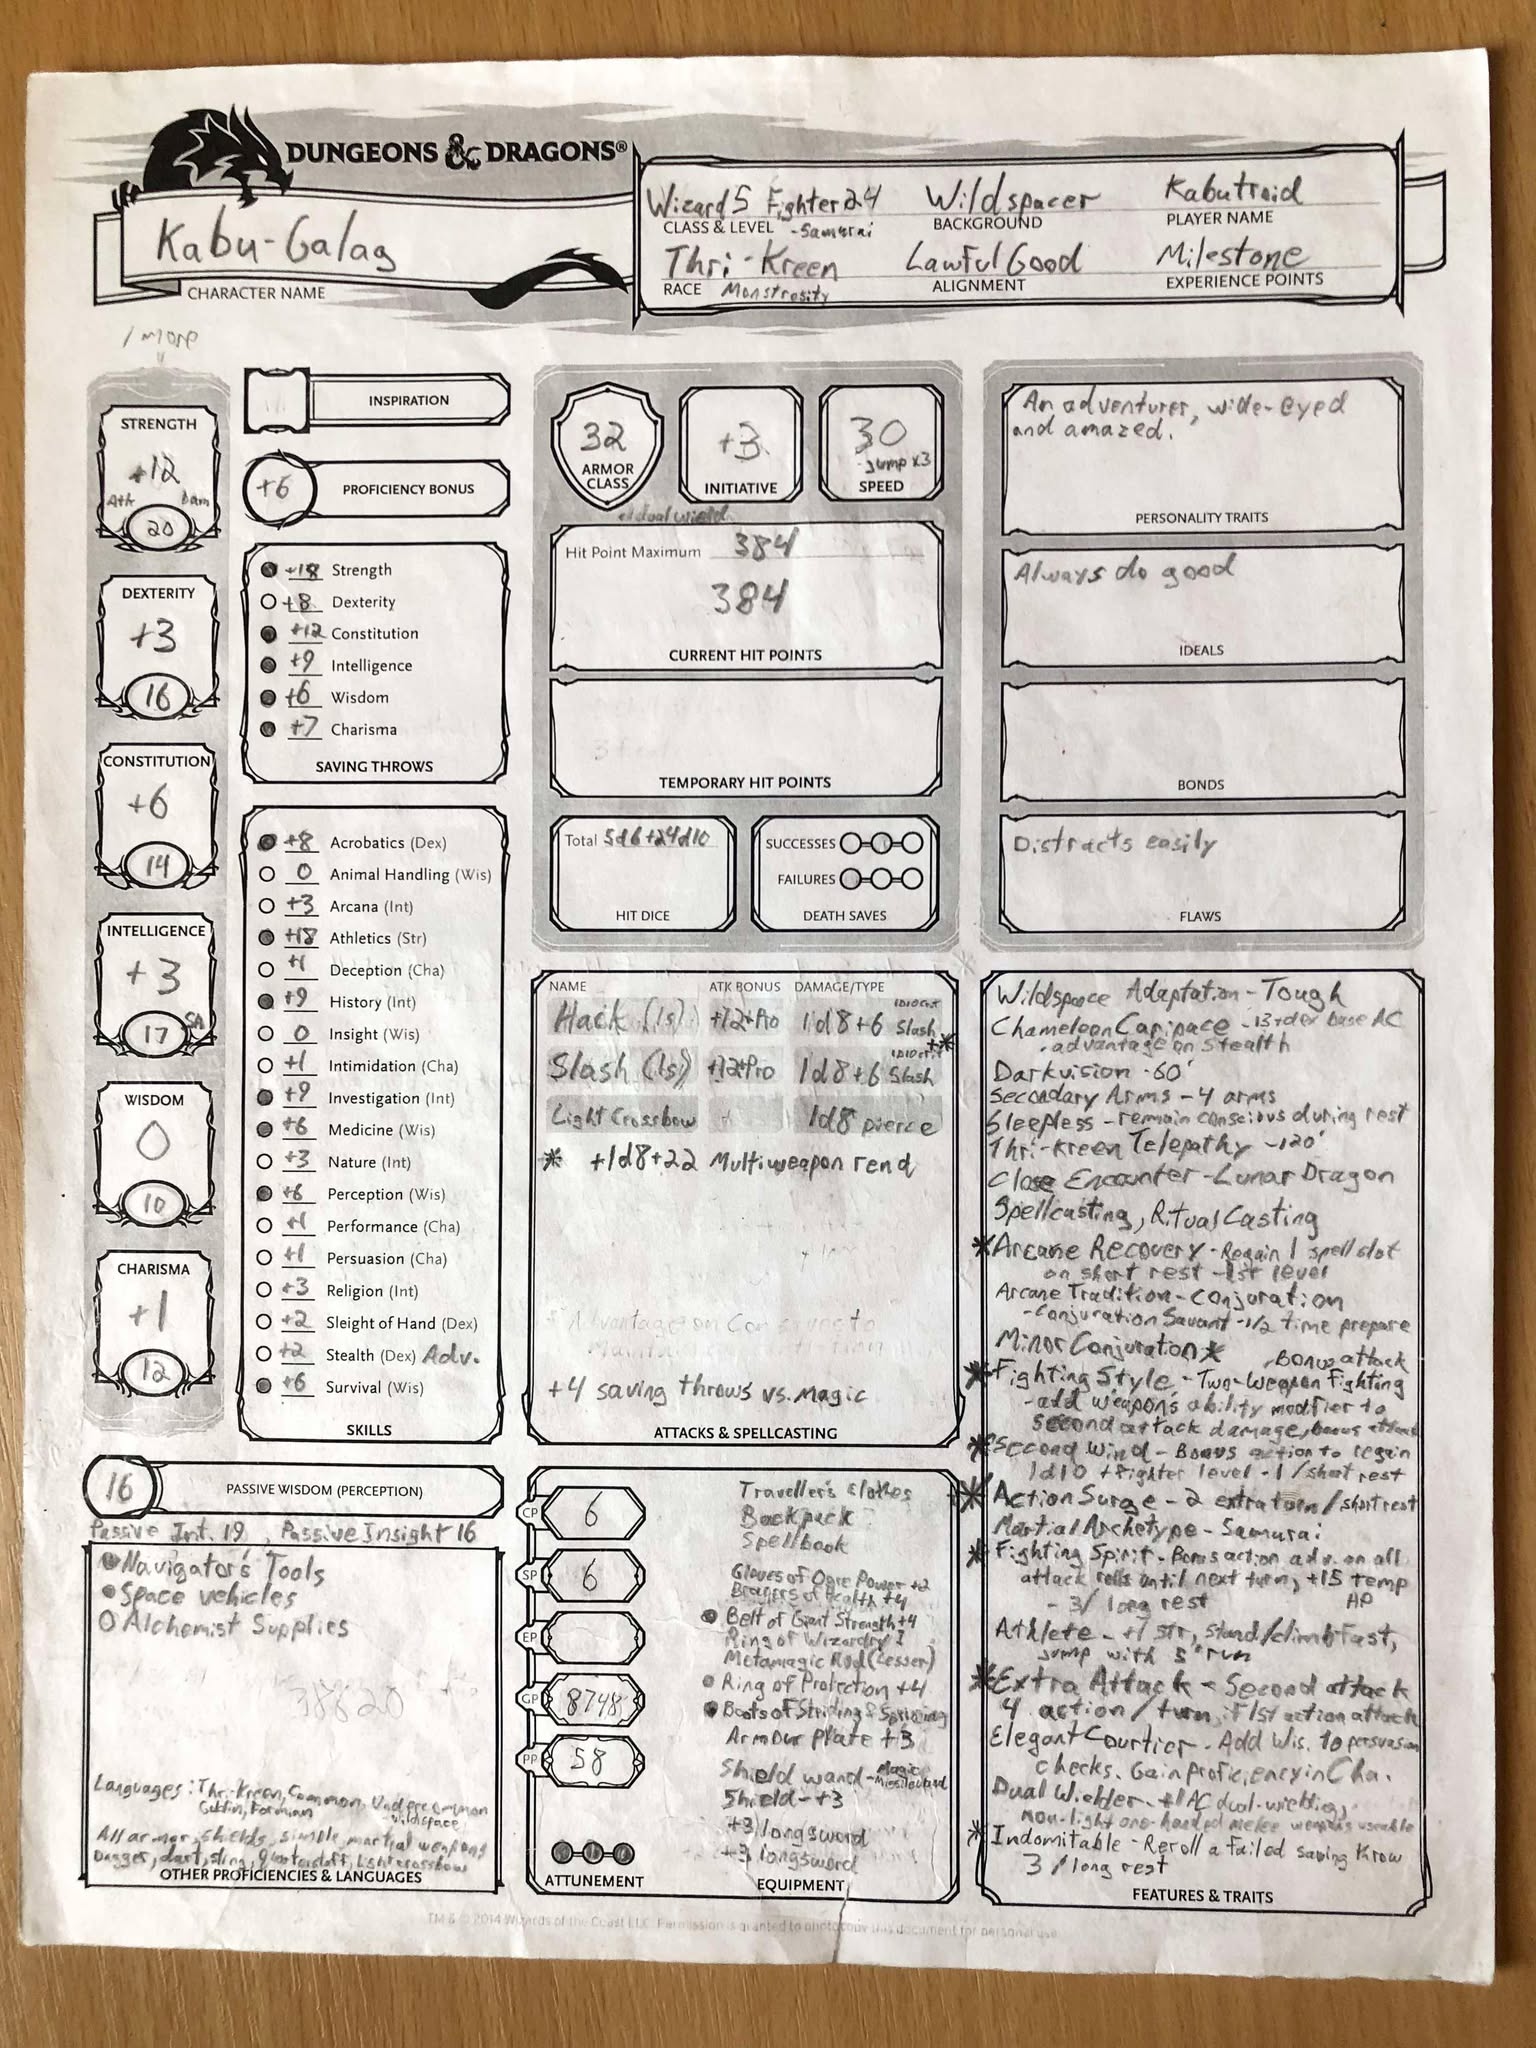 DUNGEONS & DRAGONS®
Kabu-Galag
CHARACTER NAME
Wizard 5 Fighter 24 Wildspacer Kabutroid
CLASS & LEVEL -Samurai BACKGROUND PLAYER NAME
Thri-Kreen Lawful Good Milestone
RACE Monstrosity ALIGNMENT EXPERIENCE POINTS
1 more
STRENGTH
+12
Atk Dam
20
DEXTERITY
+3
16
CONSTITUTION
+6
14
INTELLIGENCE
+3
17 SA
WISDOM
0
10
CHARISMA
+1
12
INSPIRATION
+6 PROFICIENCY BONUS
+18 Strength
+8 Dexterity
+12 Constitution
+9 Intelligence
+6 Wisdom
+7 Charisma
SAVING THROWS
+8 Acrobatics (Dex)
0 Animal Handling (Wis)
+3 Arcana (Int)
+18 Athletics (Str)
+1 Deception (Cha)
+9 History (Int)
0 Insight (Wis)
+1 Intimidation (Cha)
+9 Investigation (Int)
+6 Medicine (Wis)
+3 Nature (Int)
+6 Perception (Wis)
+1 Performance (Cha)
+1 Persuasion (Cha)
+3 Religion (Int)
+2 Sleight of Hand (Dex)
+2 Stealth (Dex) Adv.
+6 Survival (Wis)
SKILLS
16 PASSIVE WISDOM (PERCEPTION)
Passive Int. 19, Passive Insight 16
Navigator's Tools
Space vehicles
Alchemist Supplies
38620
Languages: Thri-Kreen, Common, Undercommon
Goblin, Formian, Wildspace
All armor, shields, simple, martial weapons
Dagger, dart, sling, quarterstaff, light crossbow
OTHER PROFICIENCIES & LANGUAGES
32
ARMOR CLASS
dual wield
+3
INITIATIVE
30
-jump x3
SPEED
Hit Point Maximum 384
384
CURRENT HIT POINTS
TEMPORARY HIT POINTS
Total 5d6+24d10
HIT DICE
SUCCESSES
FAILURES
DEATH SAVES
NAME ATK BONUS DAMAGE/TYPE
Hack (ls) +12+Pro 1d8+6 Slash 1D10 crit
Slash (ls) +12+Pro 1d8+6 Slash 1D10 crit
Light Crossbow 1d8 pierce
* +1d8+22 Multiweapon rend
+4 saving throws vs. Magic
ATTACKS & SPELLCASTING
CP 6
SP 6
EP
GP 8748
PP 58
ATTUNEMENT
Traveller's clothes
Backpack
Spellbook
Gloves of Ogre Power +2
Bracers of Health +4
Belt of Giant Strength +4
Ring of Wizardry I
Metamagic Rod (Lesser)
Ring of Protection +4
Boots of Striding & Springing
Armour plate +3
Shield wand - Magic Missile wand
Shield - +3
+3 longsword
+3 longsword
EQUIPMENT
An adventurer, wide-eyed
and amazed.
PERSONALITY TRAITS
Always do good
IDEALS
BONDS
Distracts easily
FLAWS
Wildspace Adaptation - Tough
Chameleon Caripace - 13+dex base AC
- advantage on Stealth
Darkvision - 60'
Secondary Arms - 4 arms
Sleepless - remain conscious during rest
Thri-Kreen Telepathy - 120'
Close Encounter - Lunar Dragon
Spellcasting, Ritual Casting
*Arcane Recovery - Regain 1 spell slot
on short rest - 1st level
Arcane Tradition - Conjuration
- Conjuration Savant - 1/2 time prepare
Minor Conjuration *
Bonus attack
*Fighting Style - Two-Weapon Fighting
- add weapon's ability modifier to
second attack damage, bonus attack
*Second Wind - Bonus action to regain
1d10 + fighter level - 1/short rest
*Action Surge - 2 extra turn/short rest
Martial Archetype - Samurai
*Fighting Spirit - Bonus action adv. on all
attack rolls until next turn, +15 temp
HP
- 3/long rest
Athlete - +1 str, stand/climb fast,
jump with 5' run
*Extra Attack - Second attack
4 action/turn, if 1st action attack
Elegant Courtier - Add Wis. to persuasion
checks. Gain proficiency in Cha.
Dual Wielder - +1 AC dual-wielding,
non-light one-handed melee weapons useable
*Indomitable - Reroll a failed saving throw
3/long rest
FEATURES & TRAITS
TM & © 2014 Wizards of the Coast LLC. Permission is granted to photocopy this document for personal use.